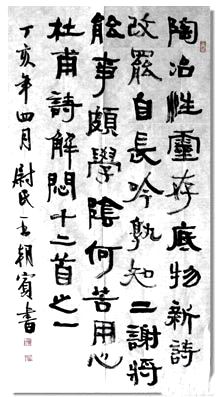 陶冶性靈存底物新詩
改罷自長吟孰知二謝將
能事頗學陰何苦用心
杜甫詩解悶十二首之一
丁亥年四月尉氏王朝賓書